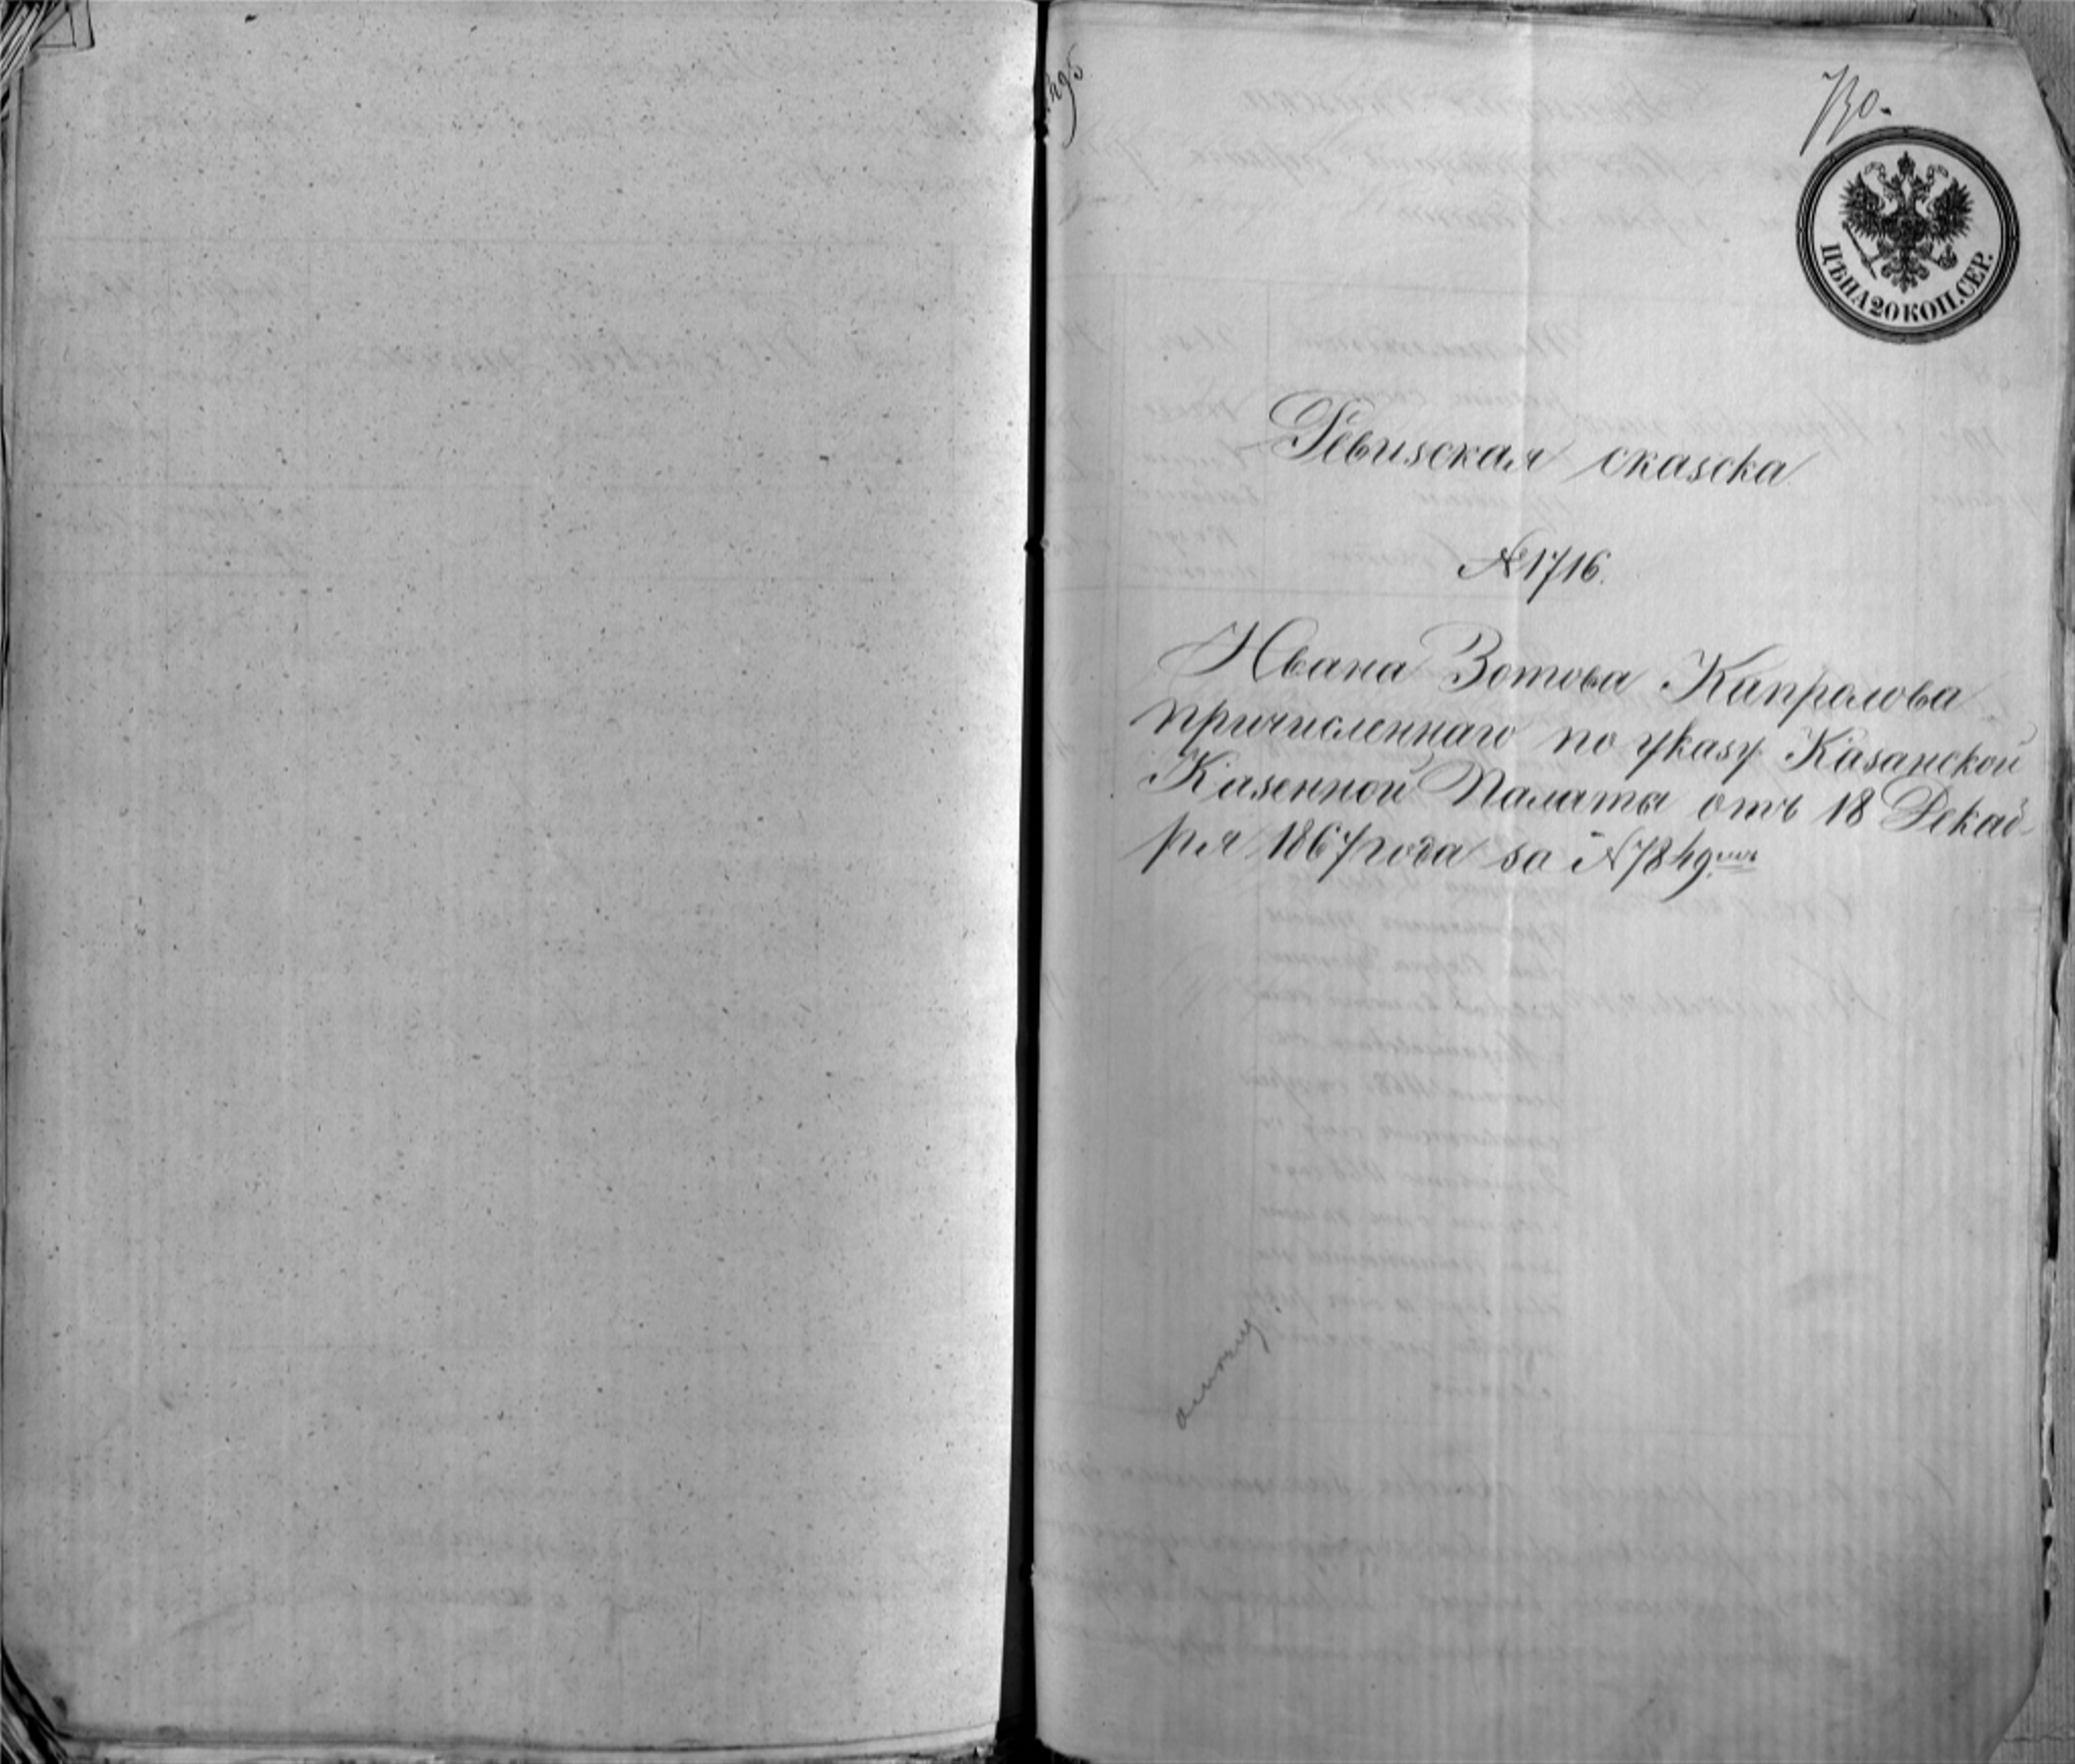 730.
ЦѢНА 20 КОП. СЕР.
Ревизская сказска
№ 1716.
Ивана Зотова Капралова
причисленнаго по указу Казанской
Казенной Палаты отъ 18 Декаб
ря 1867 года за № 7849.